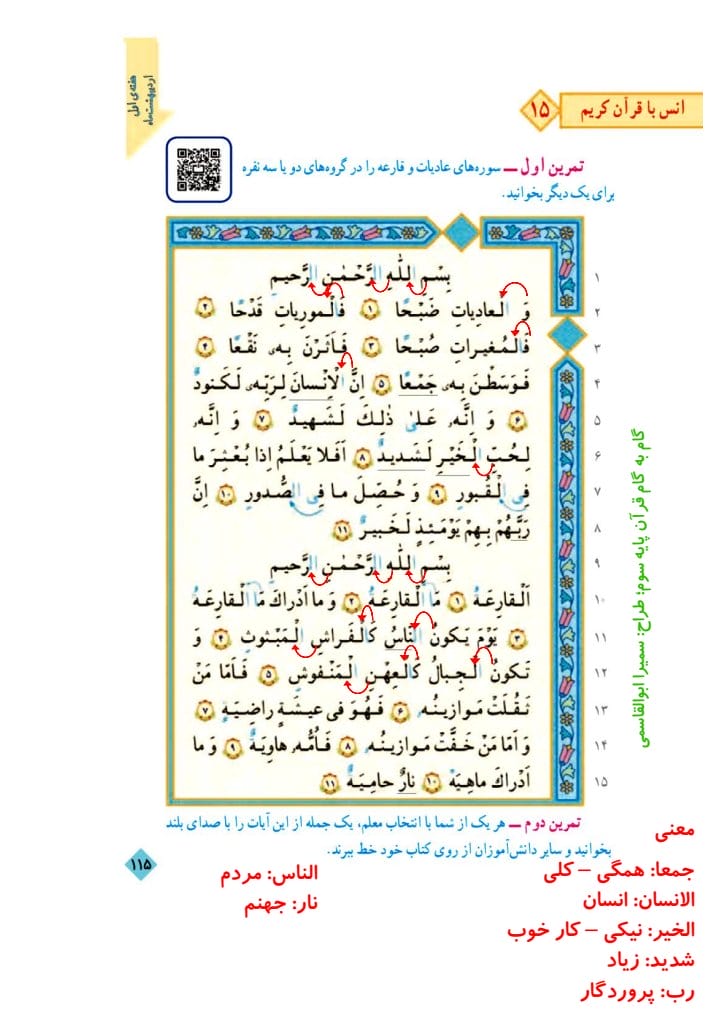 هفته‌ی اول
اردیبهشت‌ماه
انس با قرآن کریم ۱۵
تمرین اول ــ سوره‌های عادیات و قارعه را در گروه‌های دو یا سه نفره
برای یک دیگر بخوانید.
بِسْمِ اللّٰهِ الرَّحْمٰنِ الرَّحیمِ ۱
وَ الْعادِیاتِ ضَبْحًا ۱ فَالْمورِیاتِ قَدْحًا ۲ ۲
فَالْمُغیراتِ صُبْحًا ۳ فَاَثَرْنَ بِهٖ نَقْعًا ۴ ۳
فَوَسَطْنَ بِهٖ جَمْعًا ۵ اِنَّ الْاِنْسانَ لِرَبِّهٖ لَكَنودٌ ۴
۶ وَ اِنَّهٗ عَلىٰ ذٰلِكَ لَشَهیدٌ ۷ وَ اِنَّهٗ ۵
لِحُبِّ الْخَیْرِ لَشَدیدٌ ۸ اَفَلا یَعْلَمُ اِذا بُعْثِرَ ما ۶
فِی الْقُبورِ ۹ وَ حُصِّلَ ما فِی الصُّدورِ ۱۰ اِنَّ ۷
رَبَّهُمْ بِهِمْ یَوْمَئِذٍ لَخَبیرٌ ۱۱ ۸
بِسْمِ اللّٰهِ الرَّحْمٰنِ الرَّحیمِ ۹
اَلْقارِعَةُ ۱ مَا الْقارِعَةُ ۲ وَ ما اَدْراكَ مَا الْقارِعَةُ ۱۰
۳ یَوْمَ یَكونُ النّاسُ كَالْفَراشِ الْمَبْثوثِ ۴ وَ ۱۱
تَكونُ الْجِبالُ كَالْعِهْنِ الْمَنْفوشِ ۵ فَاَمّا مَنْ ۱۲
ثَقُلَتْ مَوازینُهٗ ۶ فَهُوَ فی عیشَةٍ راضِیَةٍ ۷ ۱۳
وَ اَمّا مَنْ خَفَّتْ مَوازینُهٗ ۸ فَاُمُّهٗ هاوِیَةٌ ۹ وَ ما ۱۴
اَدْراكَ ماهِیَهْ ۱۰ نارٌ حامِیَةٌ ۱۱ ۱۵
گام به گام قرآن پایه سوم: طراح: سمیرا ابوالقاسمی
تمرین دوم ــ هر یک از شما با انتخاب معلم، یک جمله از این آیات را با صدای بلند
بخوانید و سایر دانش‌آموزان از روی کتاب خود خط ببرند.
۱۱۵
معنی
جمعا: همگی – کلی
الانسان: انسان
الخیر: نیکی – کار خوب
شدید: زیاد
رب: پروردگار
الناس: مردم
نار: جهنم